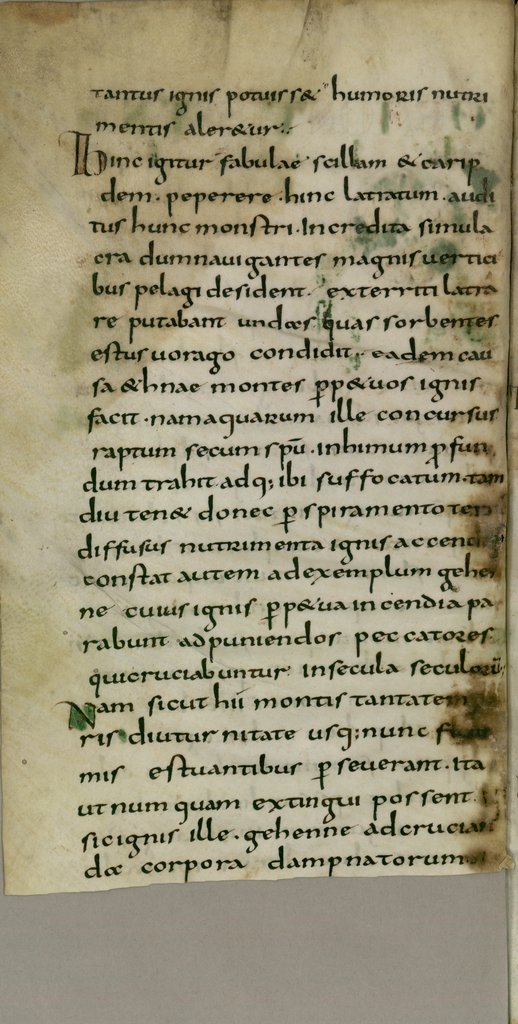 tantus ignis potuiss& humoris nutri
mentis aler&ur:
Hinc igitur fabulae scillam & carip
dem. peperere. hinc latratum. audi
tus hunc monstri. Incredita simula
cra dumnauigantes magnis uertici
bus pelagi desident. exterriti latra
re putabant undas quas sorbentes
estus uorago condidit. eadem cau
sa &hnae montes ꝑp&uos ignis
facit. nam aquarum ille concursus
raptum secum spū. inhimum ꝓfun
dum trahit adq; ibi suffocatum. tam
diu ten& donec ꝑ spiramento ter
diffusus nutrimenta ignis accend
constat autem ad exemplum gehe
ne cuius ignis ꝑp&ua incendia pa
rabunt ad puniendos peccatores.
qui cruciabuntur in secula seculorū;
Nam sicut hii montis tanta tem
ris diuturnitate usq; nunc
mis estuantibus ꝑseuerant. Ita
ut numquam extingui possent.
sic ignis ille. gehenne ad crucian
da corpora dampnatorum